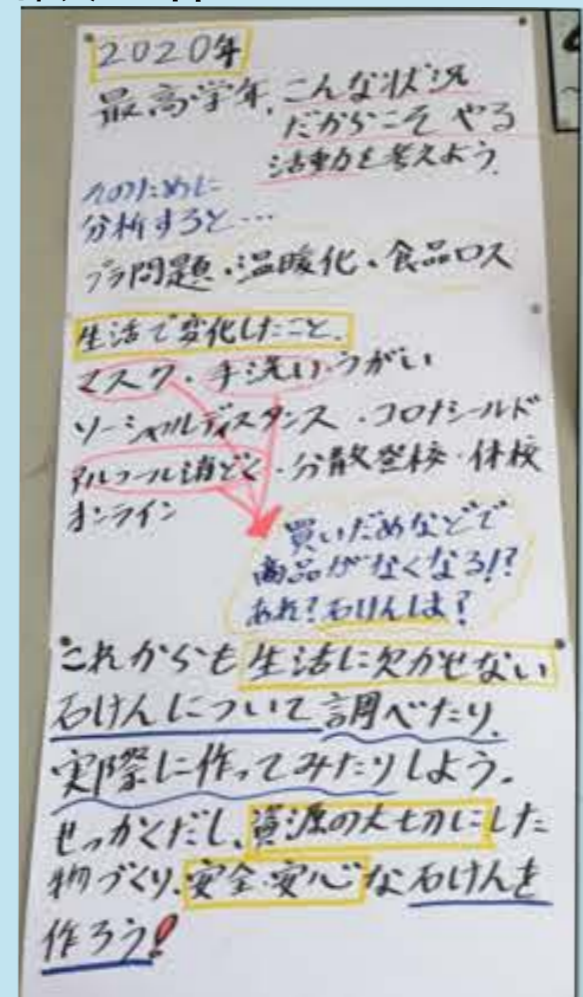 2020年
最高学年、こんな状況
だからこそ やる
活動を考えよう。
そのために
分析すると…
プラ問題・温暖化・食品ロス
生活で変化したこと。
マスク・手洗い・うがい
ソーシャルディスタンス・コロナシールド
アルコール消どく・分散登校・休校
オンライン
買いだめなどで
商品がなくなる!?
あれ?石けんは?
これからも生活に欠かせない
石けんについて調べたり、
実際に作ってみたりしよう。
せっかくだし、資源の大切にした
物づくり、安全・安心な石けんを
作ろう!